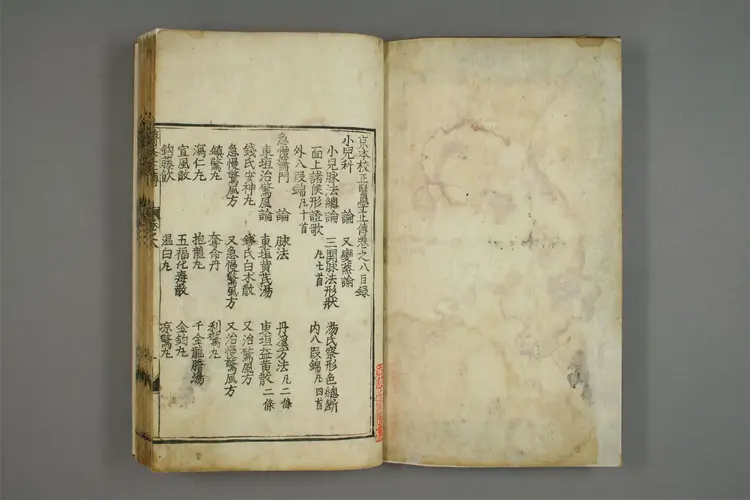 京本校正醫學正傳卷之八目錄
小兒科 論 又變蒸論
小兒脉法總論 三関脉法形狀 湯氏察形色總断
面上諸候形證歌 凡七首 内八段錦 凡四首
外八段錦 凡十首
急慢驚門 論 脉法 丹溪方法 凡二條
東垣治驚風論 東垣黄芪湯 東垣益黄散 二條
錢氏安神丸 錢氏白朮散 又治驚風方
急慢驚風方 又急慢驚風方 又治慢驚風方
鎮驚丸 奪命丹 利驚丸
瀉仁丸 抱龍丸 千金龍膽湯
宣風散 五福化毒散 金鈎丸
鈎藤飲 温白丸 凉驚丸